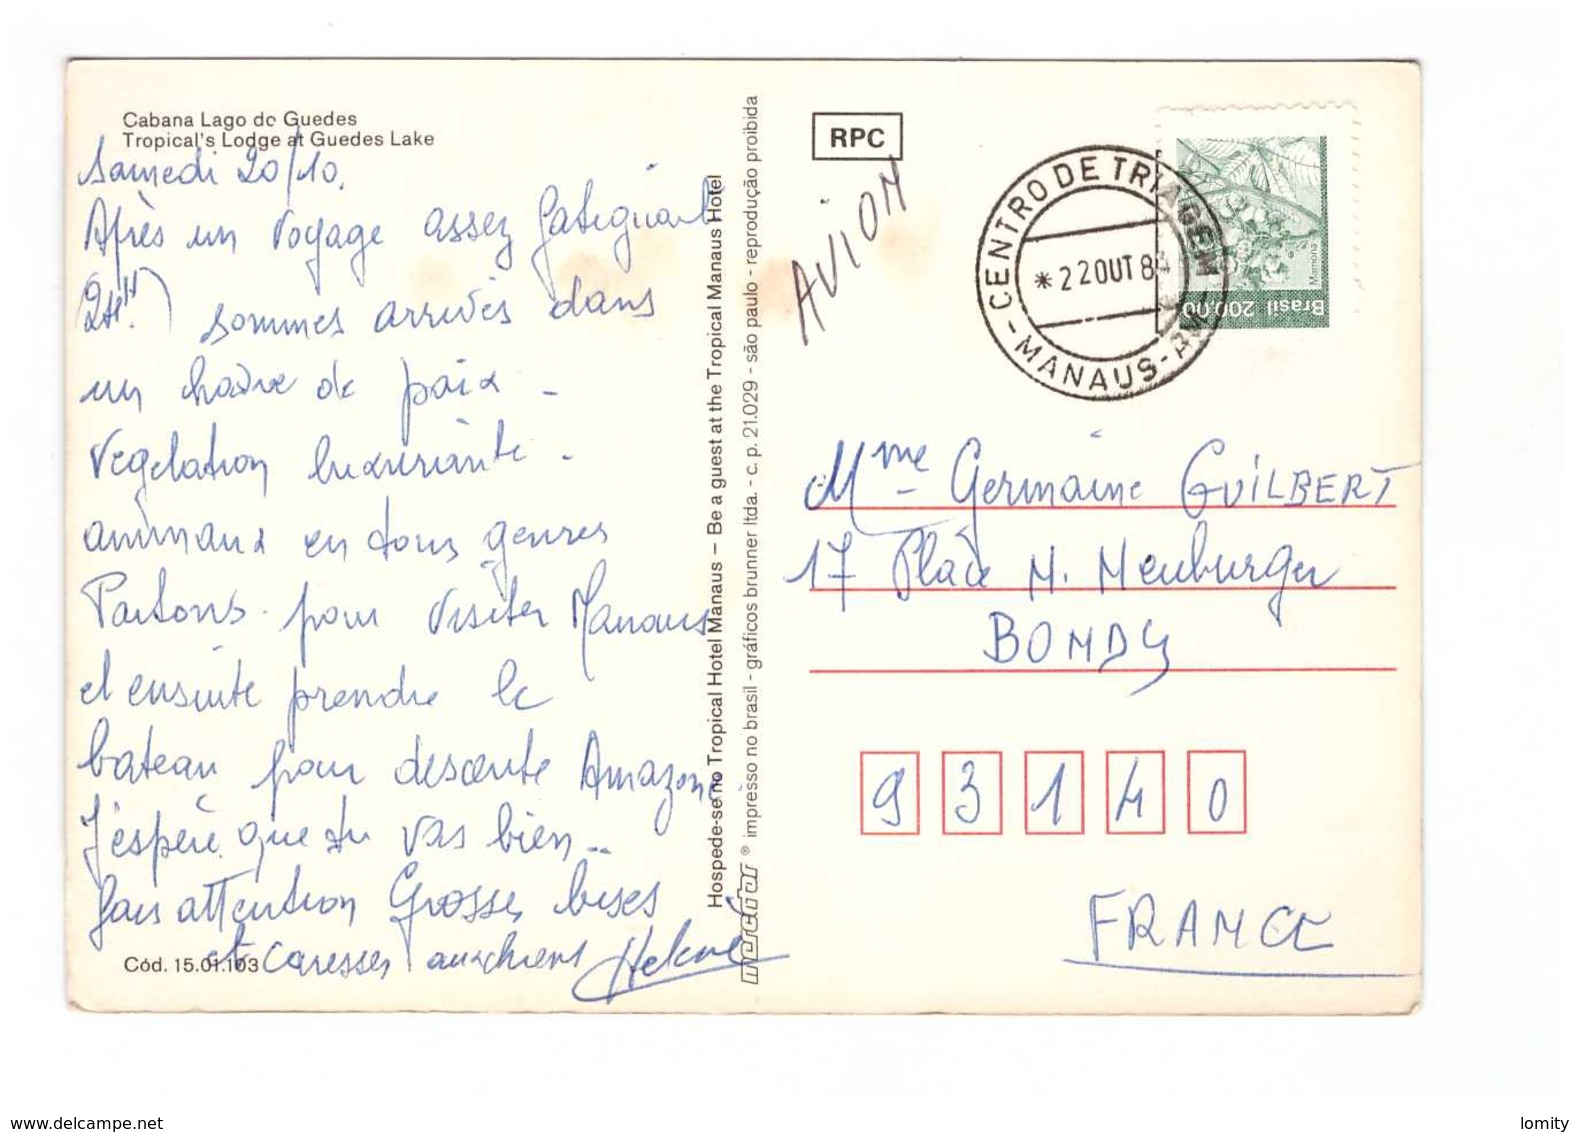 Cabana Lago do Guedes
Tropical's Lodge at Guedes Lake
Samedi 20/10.
Après un voyage assez fatiguant
24H!) sommes arrivés dans
un havre de paix -
Vegetation luxuriante -
animaux en tous genres
Partons pour visiter Manaus
et ensuite prendre le
bateau pour descente Amazone
J'espère que tu vas bien -
fais attention Grosses bises
et caresses aux chiens Helene
Cód. 15.01.103
Hospede-se no Tropical Hotel Manaus – Be a guest at the Tropical Manaus Hotel
mercator ® impresso no brasil - gráficos brunner ltda. - c. p. 21.029 - são paulo - reprodução proibida
RPC
AVION
CENTRO DE TRIAGEM
*22OUT 84
- MANAUS - AM
Mamona
Brasil 200,00
Mme Germaine GUILBERT
17 Place N. Neuburger
BONDY
93140
FRANCE
www.delcampe.net
lomity